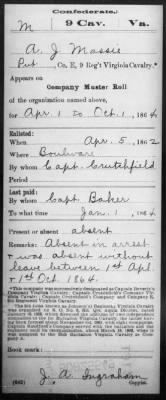 Confederate.
M 9 Cav. Va.
A. J. Massie
Pvt, Co. E, 9 Reg't Virginia Cavalry.*
Appears on
Company Muster Roll
of the organization named above,
for Apr 1 to Oct 1, 1864
Enlisted:
When Apr. 5, 1862
Where Boulware
By whom Capt. Crutchfield
Period
Last paid:
By whom Capt. Baker
To what time Jan. 1, 1864
Present or absent absent
Remarks: Absent in arrest
& was absent without
leave between 1st Apl.
& 1st Oct 1864.
Book mark:
J. A. Ingraham
(642) Copyist.